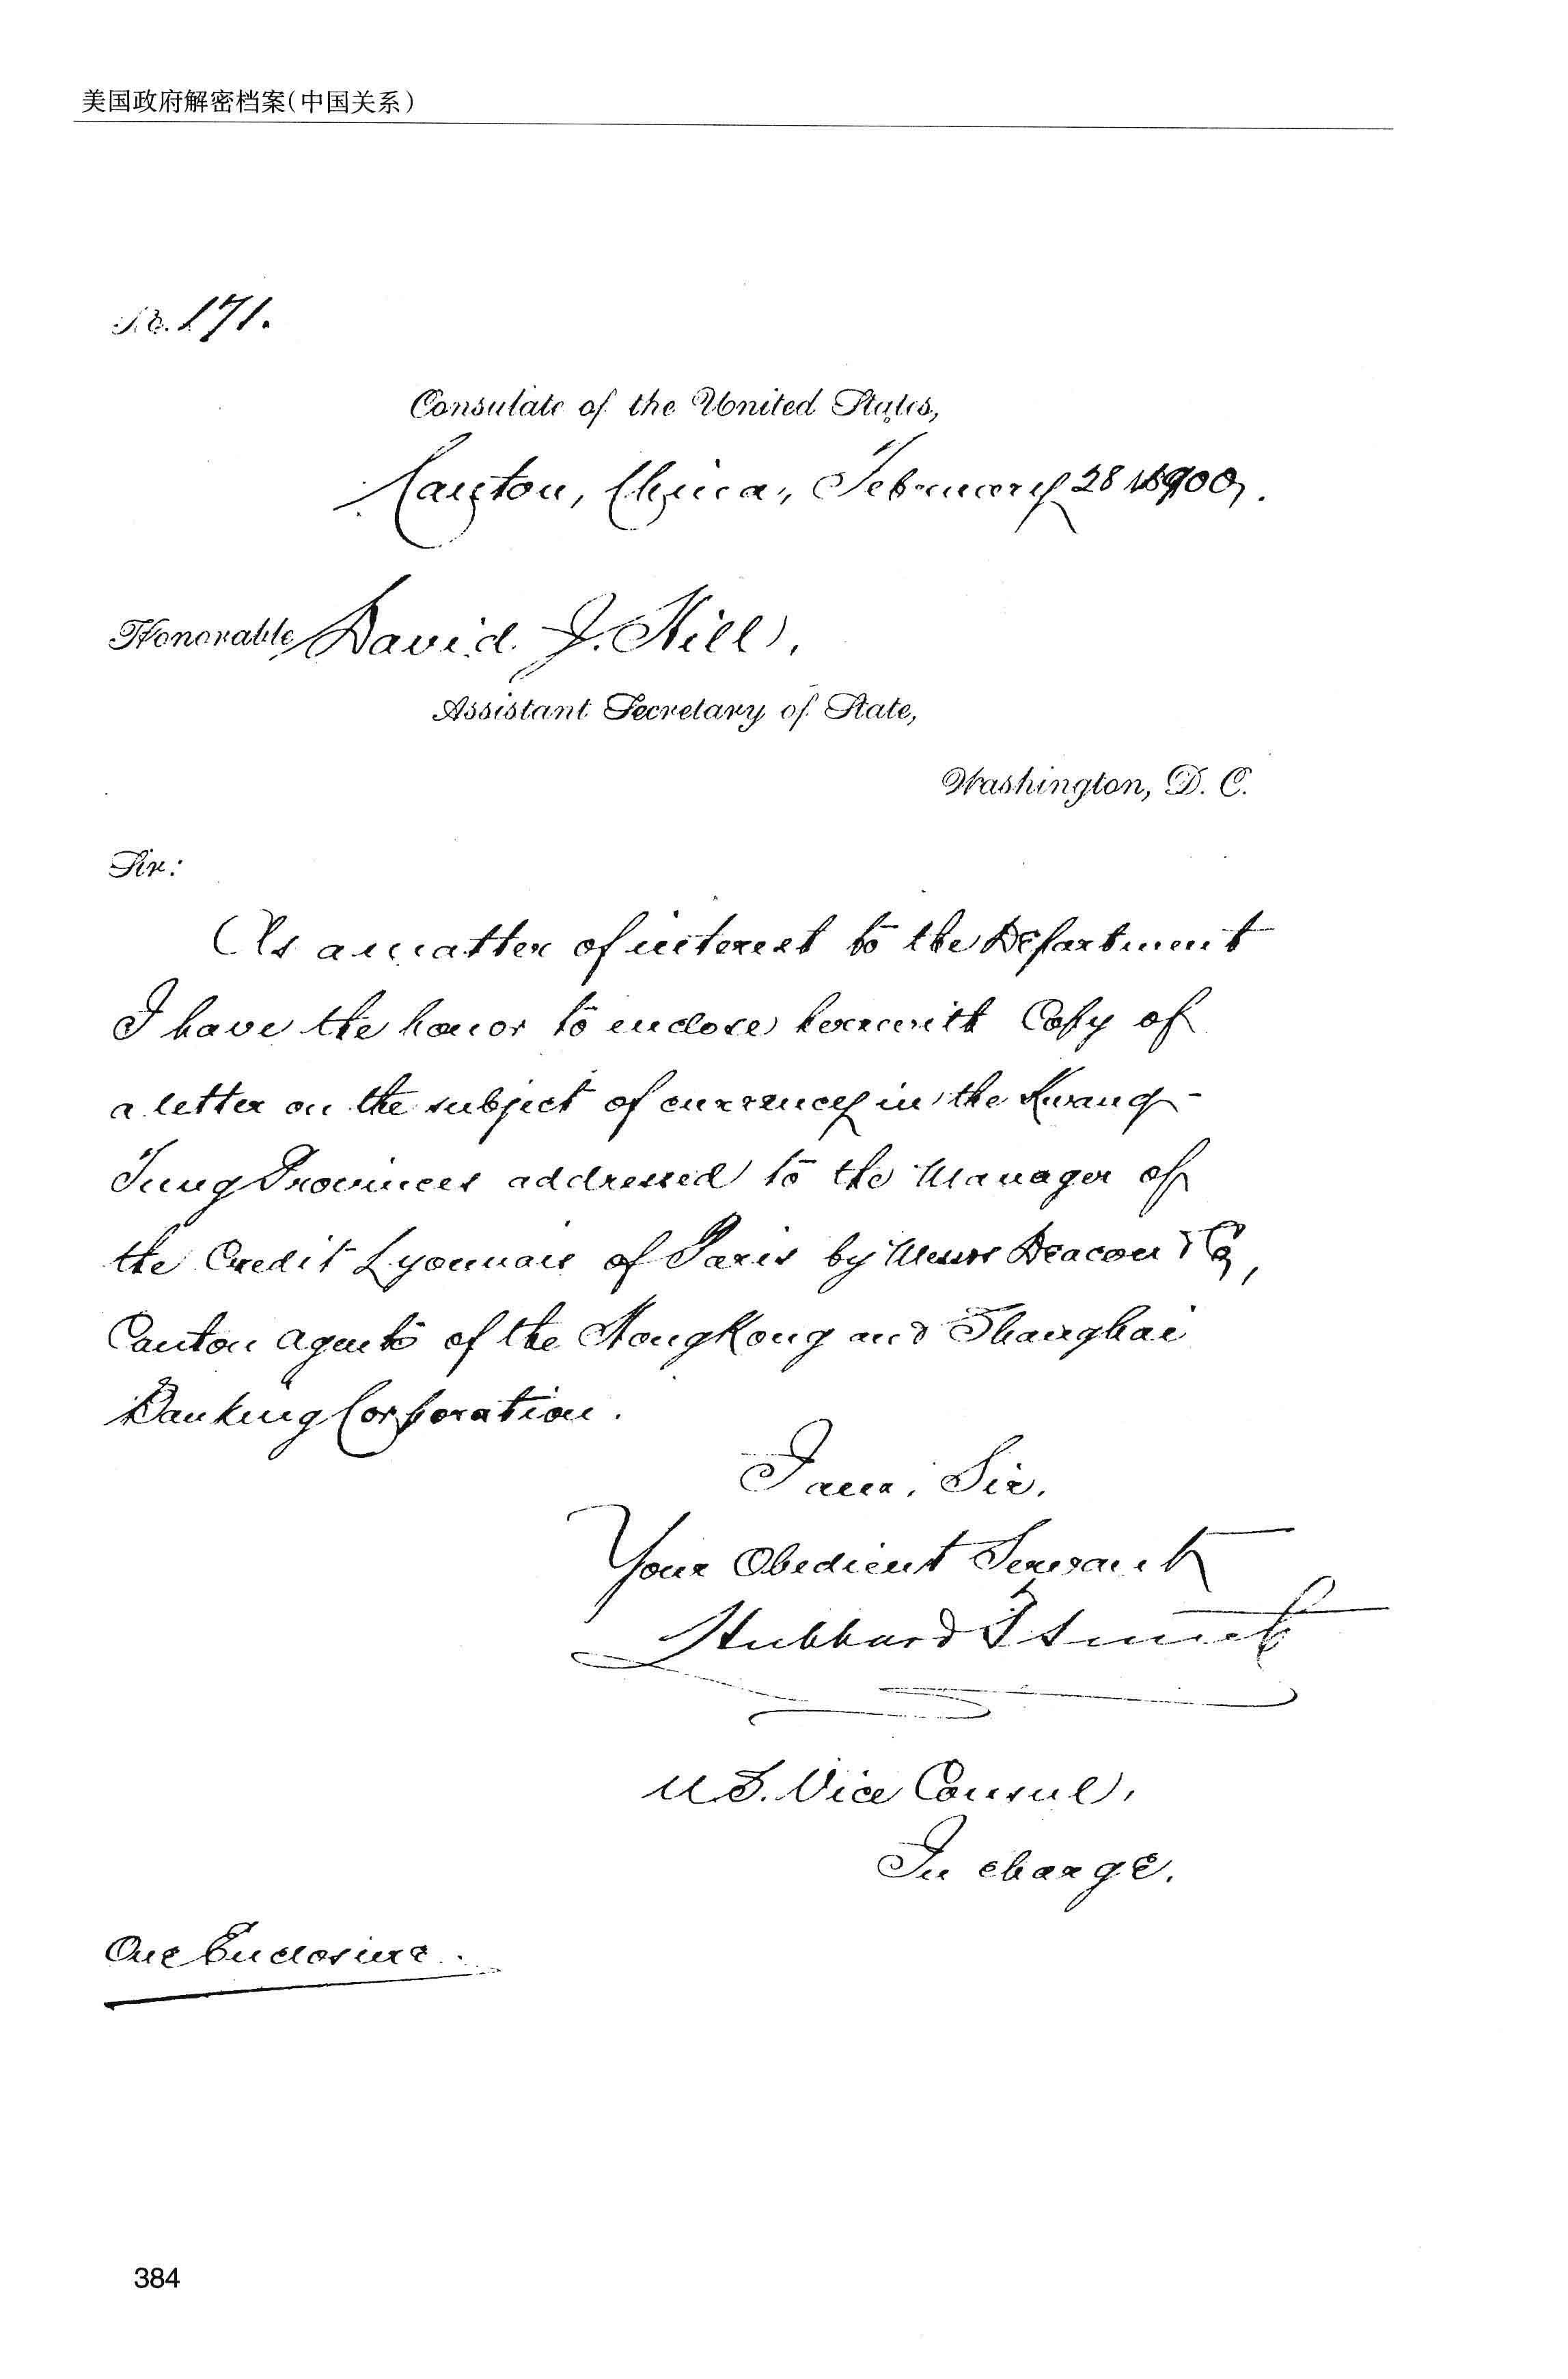 美国政府解密档案(中国关系)
No. 171.
Consulate of the United States,
Canton, China, February 28 1900.
Honorable David J. Hill,
Assistant Secretary of State,
Washington, D. C.
Sir:
As a matter of interest to the Department
I have the honor to enclose herewith Copy of
a letter on the subject of currency in the Kwang-
Tung Provinces addressed to the Manager of
the Credit Lyonnais of Paris by Messrs Deacon & Co,
Canton agents of the HongKong and Shanghai
Banking Corporation.
I am, Sir,
Your Obedient Servant
Hubbard T. Smith
U.S. Vice Consul,
In charge.
One Enclosure.
384